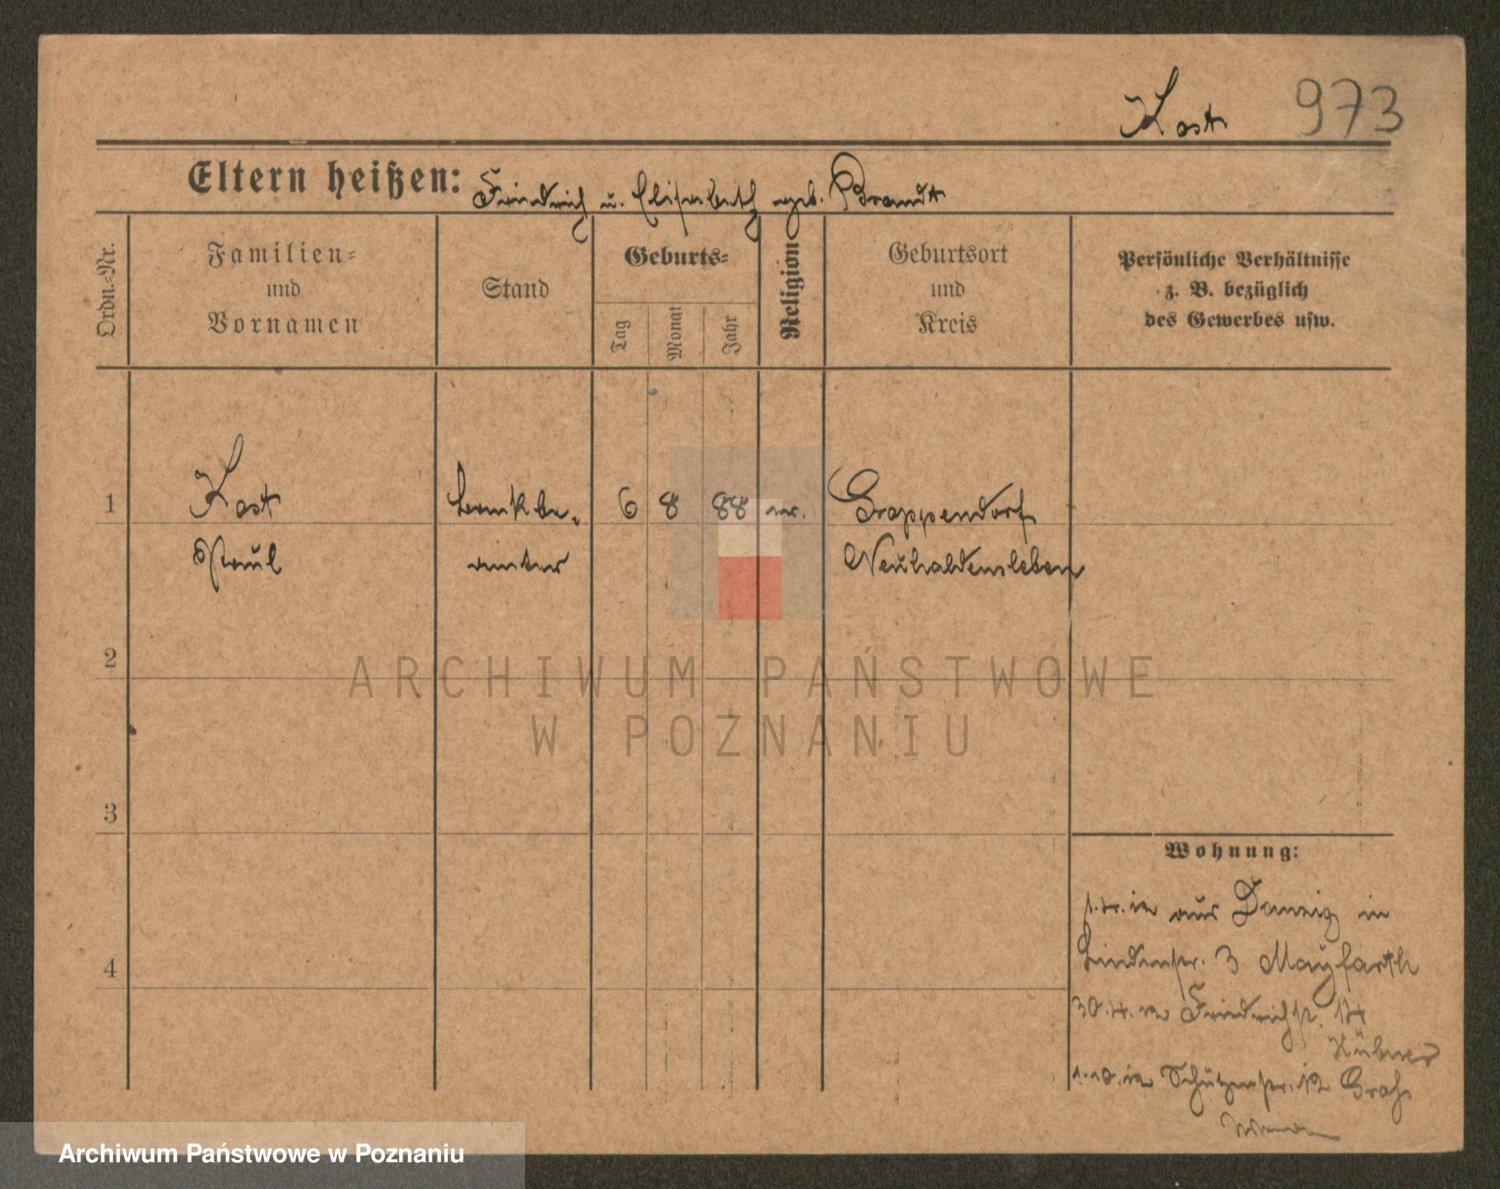 Kost 973
Eltern heißen: Friedrich u. Elisabeth geb. Brandt
Ordn.-Nr.
Familien-
und
Vornamen
Stand
Geburts-
Tag
Monat
Jahr
Religion
Geburtsort
und
Kreis
Persönliche Verhältnisse
z. B. bezüglich
des Gewerbes usw.
1 Kost Bankbe- 6 8 88 ev. Groppendorf
Paul amter Neuhaldensleben
2
ARCHIWUM PAŃSTWOWE
W POZNANIU
3
Wohnung:
aus Danzig in
Lindenstr. 3 Mayfarth
4
30.4. Friedrichstr. 14
Hübner
1.10.12 Schützenstr. 12
Archiwum Państwowe w Poznaniu